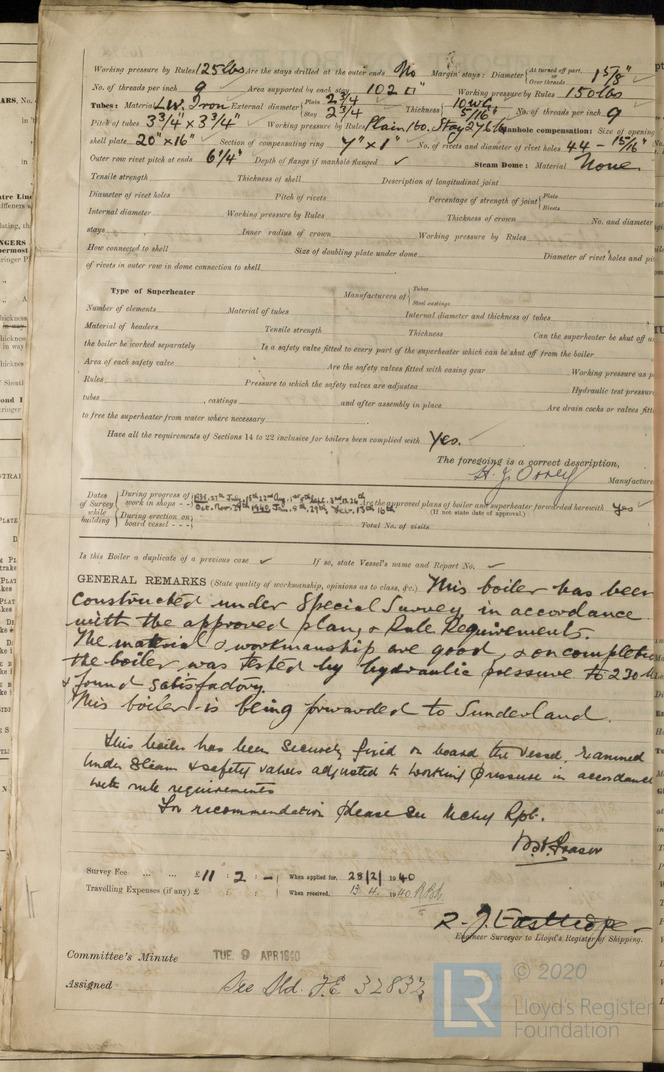 Working pressure by Rules 125 lbs Are the stays drilled at the outer ends No Margin stays: Diameter { At turned off part, or Over threads 1 5/8"
No. of threads per inch 9 Area supported by each stay 102 □" Working pressure by Rules 150 lbs
Tubes: Material L.W. Iron External diameter { Plain 2 3/4 Stay 2 3/4 Thickness { 10 WG 5/16" No. of threads per inch 9
Pitch of tubes 3 3/4" x 3 3/4" Working pressure by Rules Plain 160. Stay 276 lb Manhole compensation: Size of opening
shell plate 20" x 16" Section of compensating ring 7" x 1" No. of rivets and diameter of rivet holes 44 - 15/16"
Outer row rivet pitch at ends 6 1/4" Depth of flange if manhole flanged ✓ Steam Dome: Material None
Tensile strength Thickness of shell Description of longitudinal joint
Diameter of rivet holes Pitch of rivets Percentage of strength of joint { Plate Rivets
Internal diameter Working pressure by Rules Thickness of crown No. and diameter
stays Inner radius of crown Working pressure by Rules
How connected to shell Size of doubling plate under dome Diameter of rivet holes and
of rivets in outer row in dome connection to shell
Type of Superheater Manufacturers of { Tubes Steel castings
Number of elements Material of tubes Internal diameter and thickness of tubes
Material of headers Tensile strength Thickness Can the superheater be shut off
the boiler be worked separately Is a safety valve fitted to every part of the superheater which can be shut off from the boiler
Area of each safety valve Are the safety valves fitted with easing gear Working pressure as
Rules Pressure to which the safety valves are adjusted Hydraulic test pressure
tubes , castings and after assembly in place Are drain cocks or valves
to free the superheater from water where necessary
Have all the requirements of Sections 14 to 22 inclusive for boilers been complied with Yes.
The foregoing is a correct description,
Manufacture
Dates of Survey while building { During progress of work in shops - - Are the approved plans of boiler and superheater forwarded herewith Yes
(If not state date of approval.)
During erection on board vessel - - - Total No. of visits
Is this Boiler a duplicate of a previous case ✓ If so, state Vessel's name and Report No. ✓
GENERAL REMARKS (State quality of workmanship, opinions as to class, &c.) This boiler has been
constructed under Special Survey in accordance
with the approved plan, & Rule Requirements.
The material & workmanship are good, & on
the boiler, was tested by hydraulic pressure to 230
& found satisfactory.
This boiler is being forwarded to Sunderland.
This boiler has been securely fixed on board the vessel, examined
under steam & safety valves adjusted to working pressure in accordance
with rule requirements
For recommendation please see Mchy Rpt.
Fraser
Survey Fee ... ... £ 11 : 2 : - When applied for, 28/2/1940
Travelling Expenses (if any) £ : : When received, 13.4.1940
R. J. Easthope
Engineer Surveyor to Lloyd's Register of Shipping.
Committee's Minute TUE. 9 APR 1940
Assigned See Sld. F.E 32832
LR © 2020
Lloyd's Register
Foundation